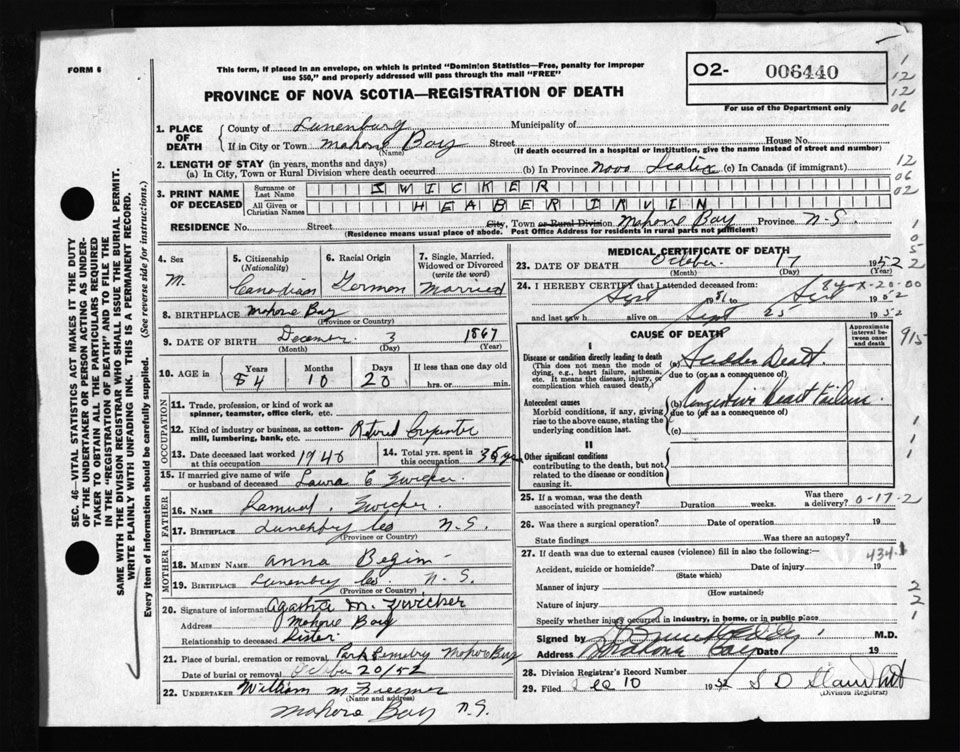 FORM 6
This form, if placed in an envelope, on which is printed "Dominion Statistics—Free, penalty for improper
use $50," and properly addressed will pass through the mail "FREE"
PROVINCE OF NOVA SCOTIA—REGISTRATION OF DEATH
O2- 006440
For use of the Department only
1
12
12
06
1. PLACE OF DEATH
County of Lunenburg Municipality of
If in City or Town Mahone Bay Street House No.
(Name) (If death occurred in a hospital or institution, give the name instead of street and number)
2. LENGTH OF STAY (in years, months and days)
(a) In City, Town or Rural Division where death occurred (b) In Province Nova Scotia (c) In Canada (if immigrant)
12
06
02
3. PRINT NAME OF DECEASED
Surname or Last Name ZWICKER
All Given or Christian Names HEABER IRVIN
RESIDENCE No. Street City, Town or Rural Division Mahone Bay Province N.S.
(Residence means usual place of abode. Post Office Address for residents in rural parts not sufficient)
1
0
5
2
4. Sex
M.
5. Citizenship
(Nationality)
Canadian
6. Racial Origin
German
7. Single, Married,
Widowed or Divorced
(write the word)
Married
8. BIRTHPLACE Mahone Bay
(Province or Country)
9. DATE OF BIRTH December 3 1867
(Month) (Day) (Year)
10. AGE in
Years 84
Months 10
Days 20
If less than one day old
hrs. or min.
OCCUPATION
11. Trade, profession, or kind of work as
spinner, teamster, office clerk, etc.
12. Kind of industry or business, as cotten-
mill, lumbering, bank, etc. Retired Carpenter
13. Date deceased last worked
at this occupation 1940
14. Total yrs. spent in
this occupation 35 yrs
15. If married give name of wife
or husband of deceased Laura E Zwicker.
FATHER
16. Name Samuel Zwicker
17. Birthplace Lunenburg Co N.S.
(Province or Country)
MOTHER
18. MAIDEN NAME Anna
19. BIRTHPLACE Lunenburg Co. N.S.
(Province or Country)
20. Signature of informant Agatha M. Zwicker
Address Mahone Bay
Relationship to deceased Sister.
21. Place of burial, cremation or removal Park Cemetry Mahone Bay
Date of burial or removal October 20/52
22. UNDERTAKER William M
(Name and address)
Mahone Bay N.S.
MEDICAL CERTIFICATE OF DEATH
23. DATE OF DEATH October 17 1952
(Month) (Day) (Year)
24. I HEREBY CERTIFY that I attended deceased from:
84-X-20-00
Sept 1951 to Sept 1952
and last saw h alive on Sept 25 1952
CAUSE OF DEATH
Approximate
interval be-
tween onset
and death
915
I
Disease or condition directly leading to death
(This does not mean the mode of
dying, e.g., heart failure, asthenia,
etc. It means the disease, injury, or
complication which caused death.)
(a) Sudden Death
due to (or as a consequence of)
Antecedent causes
Morbid conditions, if any, giving
rise to the above cause, stating the
underlying condition last.
(b) Congestive Heart Failure
due to (or as a consequence of)
(c)
1
1
1
II
Other significant conditions
contributing to the death, but not
related to the disease or condition
causing it.
25. If a woman, was the death
associated with pregnancy? Duration weeks. Was there
a delivery?
0-17-2
26. Was there a surgical operation? Date of operation 19
State findings Was there an autopsy?
27. If death was due to external causes (violence) fill in also the following:—
434.1
Accident, suicide or homicide? Date of injury 19
(State which)
Manner of injury
(How sustained)
Nature of injury
Specify whether injury occurred in industry, in home, or in public place
2
2
1
Signed by M.D.
Address Mahone Bay Date 19
28. Division Registrar's Record Number
29. Filed Dec 10 1952
(Division Registrar)
SEC. 46—VITAL STATISTICS ACT MAKES IT THE DUTY
OF THE UNDERTAKER OR PERSON ACTING AS UNDER-
TAKER TO OBTAIN ALL THE PARTICULARS REQUIRED
IN THE "REGISTRATION OF DEATH" AND TO FILE THE
SAME WITH THE DIVISION REGISTRAR WHO SHALL ISSUE THE BURIAL PERMIT.
WRITE PLAINLY WITH UNFADING INK. THIS IS A PERMANENT RECORD.
Every item of information should be carefully supplied. (See reverse side for instructions.)